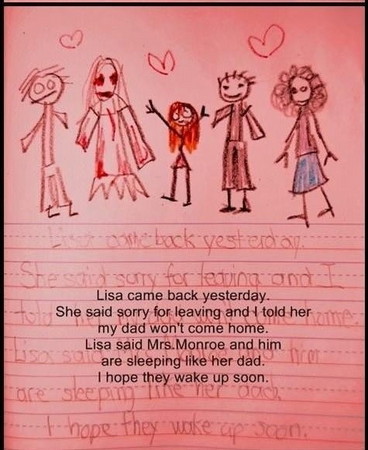 Lisa came back yesterday.
She said sorry for leaving and I
told her home.
Lisa said him
are sleeping like her dad.
I hope they wake up soon.
Lisa came back yesterday.
She said sorry for leaving and I told her
my dad won't come home.
Lisa said Mrs.Monroe and him
are sleeping like her dad.
I hope they wake up soon.